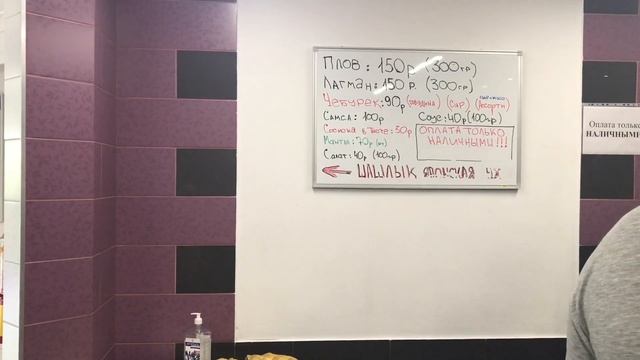 Плов: 150р (300гр)
Лагман: 150р. (300гр)
Чебурек: 90р (говядина) (Сыр) (Ассорти)
Самса: 100р
Соус: 40р (100гр)
Сосиска в тесте: 50р
Манты: 70р
Салат: 40р (100гр)
ОПЛАТА ТОЛЬКО
НАЛИЧНЫМИ!!!
ШАШЛЫК
Оплата только
НАЛИЧНЫМИ